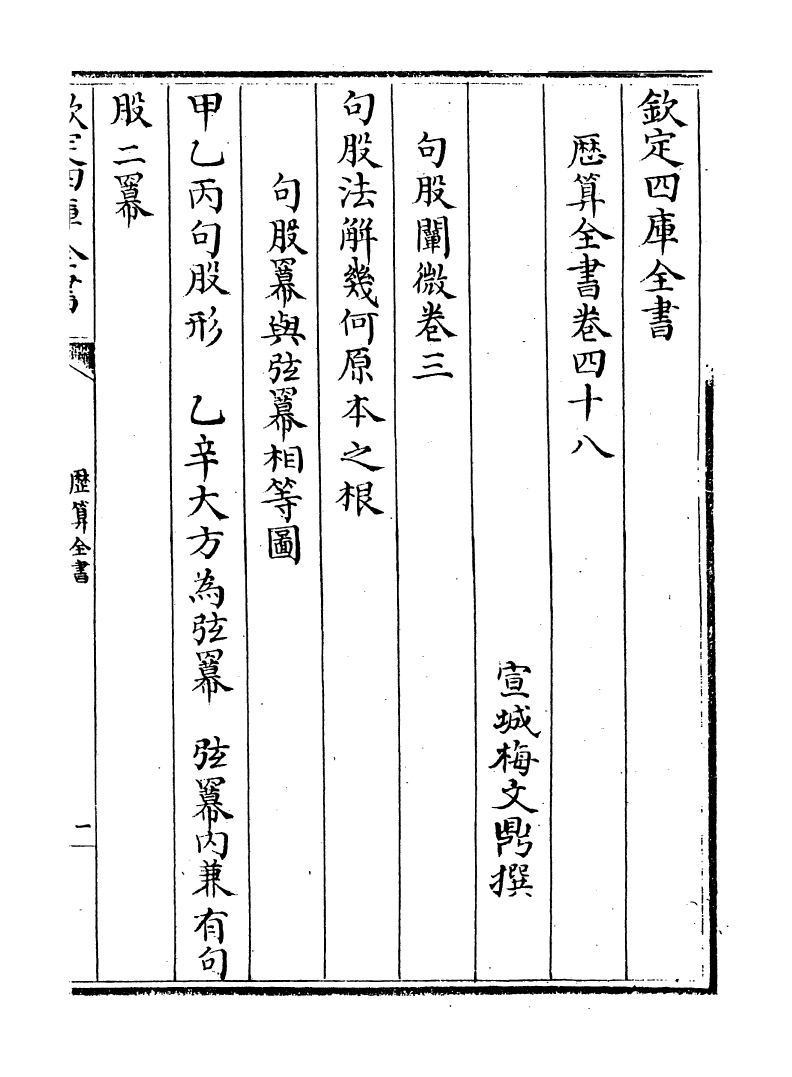 欽定四庫全書
厯算全書卷四十八
宣城梅文鼎撰
句股闡微卷三
句股法解幾何原本之根
句股羃與弦羃相等圖
甲乙丙句股形　乙辛大方為弦羃　弦羃内兼有句
股二羃
欽定四庫全書
厯算全書
一